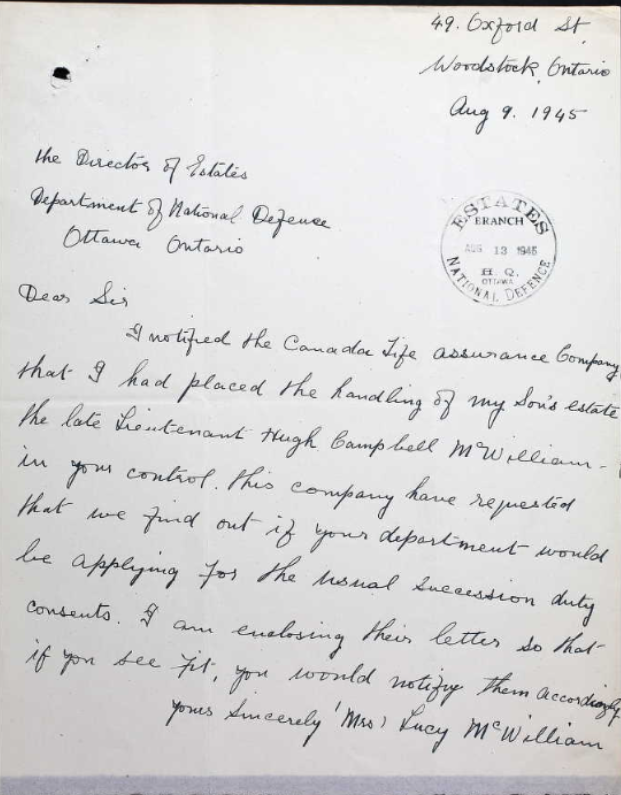 49. Oxford St
Woodstock, Ontario
Aug 9. 1945
the Director of Estates
Department of National Defence
Ottawa Ontario
ESTATES
BRANCH
AUG 13 1945
H. Q.
OTTAWA
NATIONAL DEFENCE
Dear Sir
I notified the Canada Life assurance Company
that I had placed the handling of my Son's estate
the late Lieutenant Hugh Campbell McWilliam -
in your control. this company have requested
that we find out if your department would
be applying for the usual succession duty
consents. I am enclosing their letter so that
if you see fit, you would notify them accordingly
yours Sincerely (Mrs) Lucy McWilliam